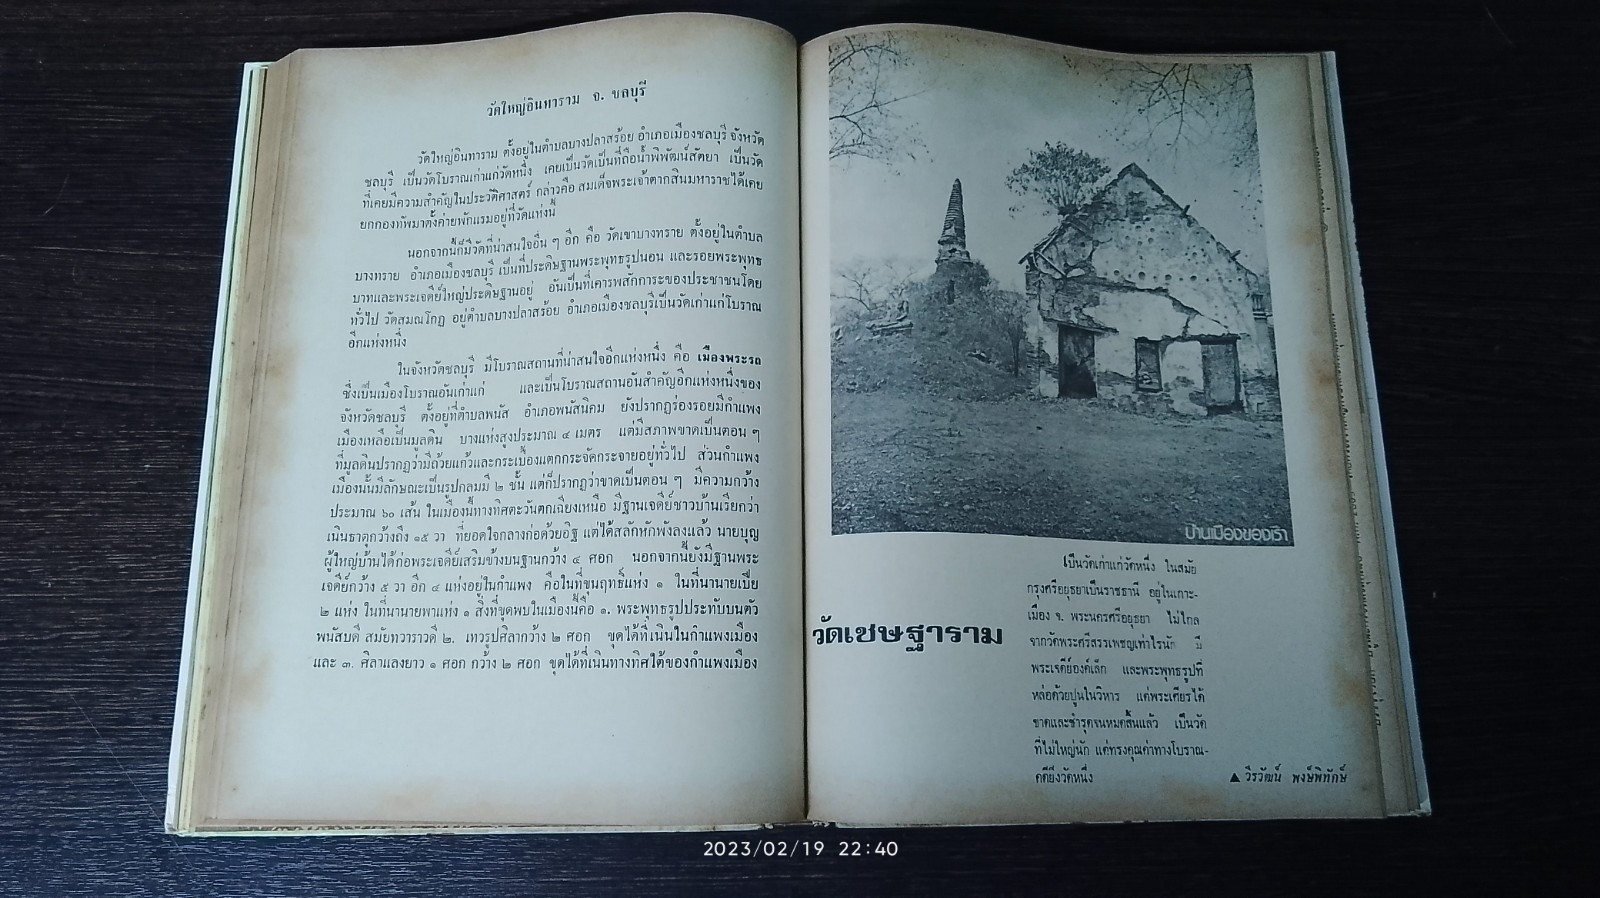 วัดใหญ่อินทาราม จ. ชลบุรี
วัดใหญ่อินทาราม ตั้งอยู่ในตำบลบางปลาสร้อย อำเภอเมืองชลบุรี จังหวัด
ชลบุรี เป็นวัดโบราณเก่าแก่วัดหนึ่ง เคยเป็นวัดเป็นที่ถือน้ำพิพัฒน์สัตยา เป็นวัด
ที่เคยมีความสำคัญในประวัติศาสตร์ กล่าวคือ สมเด็จพระเจ้าตากสินมหาราชได้เคย
ยกกองทัพมาตั้งค่ายพักแรมอยู่ที่วัดแห่งนี้
นอกจากนี้ก็มีวัดที่น่าสนใจอื่น ๆ อีก คือ วัดเขาบางทราย ตั้งอยู่ในตำบล
บางทราย อำเภอเมืองชลบุรี เป็นที่ประดิษฐานพระพุทธรูปนอน และรอยพระพุทธ
บาทและพระเจดีย์ใหญ่ประดิษฐานอยู่ อันเป็นที่เคารพสักการะของประชาชนโดย
ทั่วไป วัดสมณโกฏ อยู่ตำบลบางปลาสร้อย อำเภอเมืองชลบุรีเป็นวัดเก่าแก่โบราณ
อีกแห่งหนึ่ง
ในจังหวัดชลบุรี มีโบราณสถานที่น่าสนใจอีกแห่งหนึ่ง คือ เมืองพระรถ
ซึ่งเป็นเมืองโบราณอันเก่าแก่ และเป็นโบราณสถานอันสำคัญอีกแห่งหนึ่งของ
จังหวัดชลบุรี ตั้งอยู่ที่ตำบลพนัส อำเภอพนัสนิคม ยังปรากฏร่องรอยมีกำแพง
เมืองเหลือเป็นมูลดิน บางแห่งสูงประมาณ ๔ เมตร แต่มีสภาพขาดเป็นตอน ๆ
ที่มูลดินปรากฏว่ามีถ้วยแก้วและกระเบื้องแตกกระจัดกระจายอยู่ทั่วไป ส่วนกำแพง
เมืองนั้นมีลักษณะเป็นรูปกลมมี ๒ ชั้น แต่ก็ปรากฏว่าขาดเป็นตอน ๆ มีความกว้าง
ประมาณ ๖๐ เส้น ในเมืองนี้ทางทิศตะวันตกเฉียงเหนือ มีฐานเจดีย์ชาวบ้านเรียกว่า
เนินธาตุกว้างถึง ๑๕ วา ที่ยอดใจกลางก่อด้วยอิฐ แต่ได้สลักหักพังลงแล้ว นายบุญ
ผู้ใหญ่บ้านได้ก่อพระเจดีย์เสริมข้างบนฐานกว้าง ๔ ศอก นอกจากนี้ยังมีฐานพระ
เจดีย์กว้าง ๕ วา อีก ๔ แห่งอยู่ในกำแพง คือในที่ขุนฤทธิ์แห่ง ๑ ในที่นานายเบี่ย
๒ แห่ง ในที่นานายพาแห่ง ๑ สิ่งที่ขุดพบในเมืองนี้คือ ๑. พระพุทธรูปประทับบนตัว
พนัสบดี สมัยทวาราวดี ๒. เทวรูปศิลากว้าง ๒ ศอก ขุดได้ที่เนินในกำแพงเมือง
และ ๓. ศิลาแลงยาว ๑ ศอก กว้าง ๒ ศอก ขุดได้ที่เนินทางทิศใต้ของกำแพงเมือง
บ้านเมืองของเรา
วัดเชษฐาราม
เป็นวัดเก่าแก่วัดหนึ่ง ในสมัย
กรุงศรีอยุธยาเป็นราชธานี อยู่ในเกาะ-
เมือง จ. พระนครศรีอยุธยา ไม่ไกล
จากวัดพระศรีสรรเพชญเท่าไรนัก มี
พระเจดีย์องค์เล็ก และพระพุทธรูปที่
หล่อด้วยปูนในวิหาร แต่พระเศียรได้
ขาดและชำรุดจนหมดสิ้นแล้ว เป็นวัด
ที่ไม่ใหญ่นัก แต่ทรงคุณค่าทางโบราณ-
คดียิ่งวัดหนึ่ง
▲ วีรวัฒน์ พงษ์พิทักษ์
2023/02/19 22:40